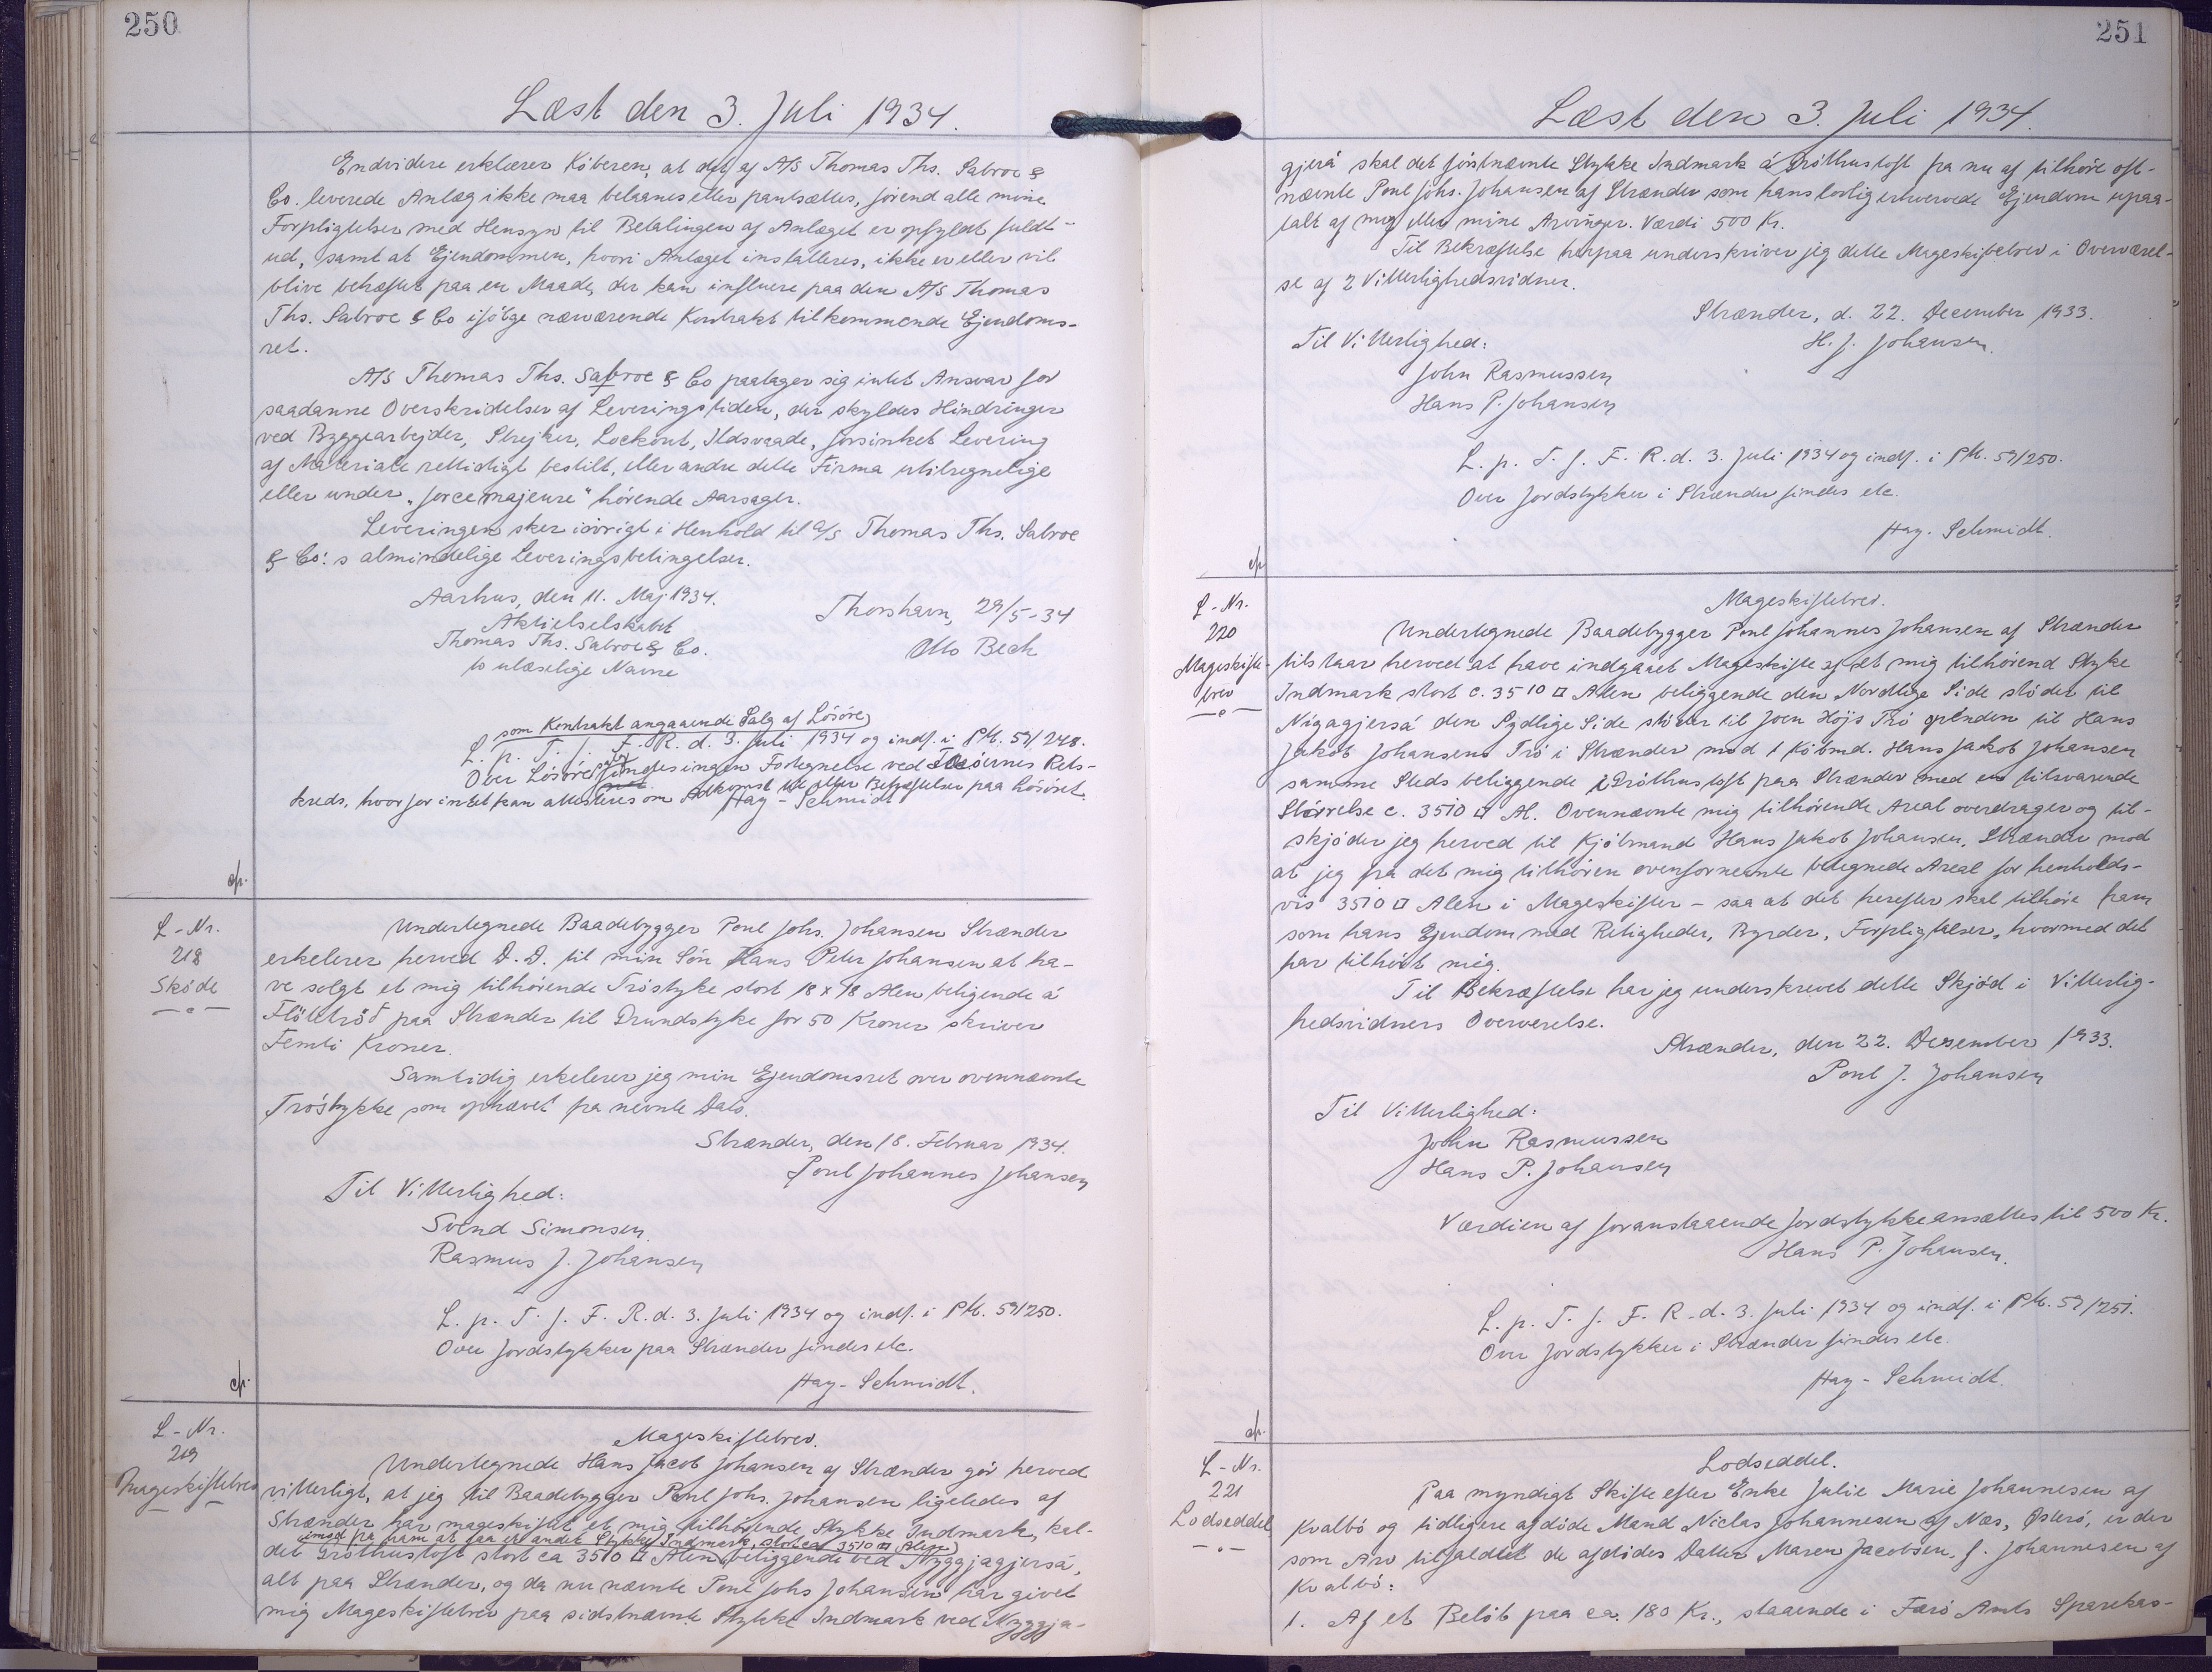 250
Læst den 3. Juli 1934.
Endvidere erklærer Köberen, at det af A/S Thomas Ths. Sabroe &
Co. leverede Anlæg ikke maa belaanes eller pantsættes, förend alle mine
Forpligtelser med Hensyn til Betalingen af Anlæget er opfyldt fuldt-
ud, samt at Ejendommen, hvori Anlæget installeres, ikke er eller vil
blive behæftet paa en Maade, der kan influere paa den A/S Thomas
Ths. Sabroe & Co ifölge nærværende Kontrakt tilkommende Ejendoms-
ret.
A/S Thomas Ths. Sabroe & Co paatager sig intet Ansvar for
saadanne Overskridelser af Leveringstiden, der skyldes Hindringer
ved Byggearbejder, Strejker, Lockout, Ildsvaade, forsinket Levering
af Materiale rettidigt bestilt, eller andre dette Firma utilregnelige
eller under "force majeure" hörende Aarsager.
Leveringen sker iövrigt i Henhold til A/S Thomas Ths. Sabroe
& Co:s almindelige Leveringsbetingelser.
Aarhus, den 11. Maj 1934.
Aktieselskabet
Thomas Ths. Sabroe & Co.
to ulæselige Navne
Thorshavn, 29/5-34
Otto Bech
som Kontrakt angaaende Salg af Lösöre
L. p. T. f. F. R. d. 3. Juli 1934 og indf. i PM. 59/248.
Over Lösöre findes ingen Fortegnelse ved Færöernes Rets-
kreds, hvorfor intet kan attesteres om Adkomst til eller Behæftelser paa Lösöret.
Hay-Schmidt
cp.
L-Nr.
218
Sköde
Undertegnede Baadebygger Poul Johs. Johansen Strænder
erkelerer herved D.D. til min Sön Hans Peter Johansen at ha-
ve solgt et mig tilhörende Tröstyke stort 18 x 18 Alen beligende á
paa Strænder til Grundstyke for 50 Kroner skriver
Femti Kroner.
Samtidig erkelerer jeg min Ejendomsret over ovennævnte
Tröstykke som ophævet fra nevnte Dato.
Strænder, den 18. Februar 1934.
Poul Johannes Johansen
Til Vitterlighed:
Svend Simonsen
Rasmus J. Johansen
L. p. T. f. F. R. d. 3. Juli 1934 og indf. i PM. 59/250.
Over Jordstykker paa Strænder findes etc.
Hay-Schmidt.
cp.
L-Nr.
219
Mageskiftebrev
Mageskiftebrev.
Undertegnede Hans Jacob Johansen af Strænder gör herved
vitterligt, at jeg til Baadebygger Poul Johs. Johansen ligeledes af
Strænder har mageskiftet et mig tilhörende Stykke Indmark, kal-
imod fra ham at faa et andet Stykke Indmark, stort ca 3510 □ Alen
det Gróthustoft stort ca 3510 □ Alen beliggende ved Nyggjagjersá,
alt paa Strænder, og da nu nævnte Poul Johs Johansen har givet
mig Mageskiftebrev paa sidstnævnte Stykke Indmark ved Nyggja-
251
Læst den 3. Juli 1934.
gjerá skal det förstnævnte Stykke Indmark á Gróthustoft fra nu af tilhöre oft-
nævnte Poul Johs. Johansen af Strænder som hans lovlig erhvervede Ejendom upaa-
talt af mig eller mine Arvinger. Værdi 500 Kr.
Til Bekræftelse herpaa underskriver jeg dette Mageskiftebrev i Overværel-
se af 2 Vitterlighedsvidner.
Strænder, d. 22. December 1933.
H. J. Johansen.
Til Vitterlighed:
John Rasmussen
Hans P. Johansen
L. p. T. f. F. R. d. 3. Juli 1934 og indf. i PM. 59/250.
Over Jordstykker i Strænder findes etc.
Hay-Schmidt.
cp.
L-Nr.
220
Mageskifte-
brev
Mageskiftebrev.
Undertegnede Baadebygger Poul Johannes Johansen af Strænder
tilstaar herved at have indgaaet Mageskifte af et mig tilhörend Styke
Indmark stort c. 3510 □ Alen beliggende den Nordlige Side stöder til
Nigagjersá den Sydlige Side stöder til Joen Höjs Trö openden til Hans
Jakob Johansens Trö i Strænder mod 1 Köbmd. Hans Jakob Johansen
samme Steds beliggende i Gróthustoft paa Strænder med en tilsvarende
Störrelse c. 3510 □ Al. Ovennævnte mig tilhörende Areal overdrager og til-
skjöder jeg herved til Kjöbmand Hans Jakob Johansen, Strænder mod
at jeg fra det mig tilhören ovenfornevnte betegnede Areal for henholds-
vis 3510 □ Alen i Mageskifter - saa at det herefter skal tilhöre ham
som hans Ejendom med Retigheder, Byrder, Forpligtelser, hvormed det
har tilhört mig.
Til Bekræftelse har jeg underskrevet dette Skjöd i Vitterlig-
hedsvidners Oververelse.
Strænder, den 22. Desember 1933.
Poul J. Johansen
Til Vitterlighed:
John Rasmussen
Hans P. Johansen
Værdien af foranstaaende Jordstykke ansættes til 500 Kr.
Hans P. Johansen.
L. p. T. f. F. R. d. 3. Juli 1934 og indf. i PM. 59/251.
Over Jordstykker i Strænder findes etc.
Hay-Schmidt.
cp.
L-Nr.
221
Lodseddel
Lodseddel.
Paa myndigt Skifte efter Enke Julie Marie Johannesen af
Kvalbö og tidligere afdöde Mand Niclas Johannesen af Næs, Österö, er der
som Arv tilfaldet de afdödes Datter Maren Jacobsen, f. Johannesen af
Kvalbö:
1. Af et Belöb paa ca. 180 Kr., staaende i Færö Amts Sparekas-